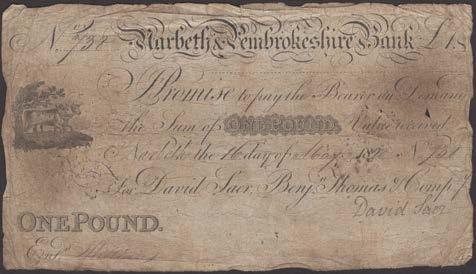 No. 731 Narbeth & Pembrokeshire Bank £1
I Promise to pay the Bearer on Demand
the Sum of ONE POUND Value received
Narbeth the 16 day of May No 731
For David Saer, Benjn. Thomas & Compy.
David Saer
ONE POUND.
Entd.